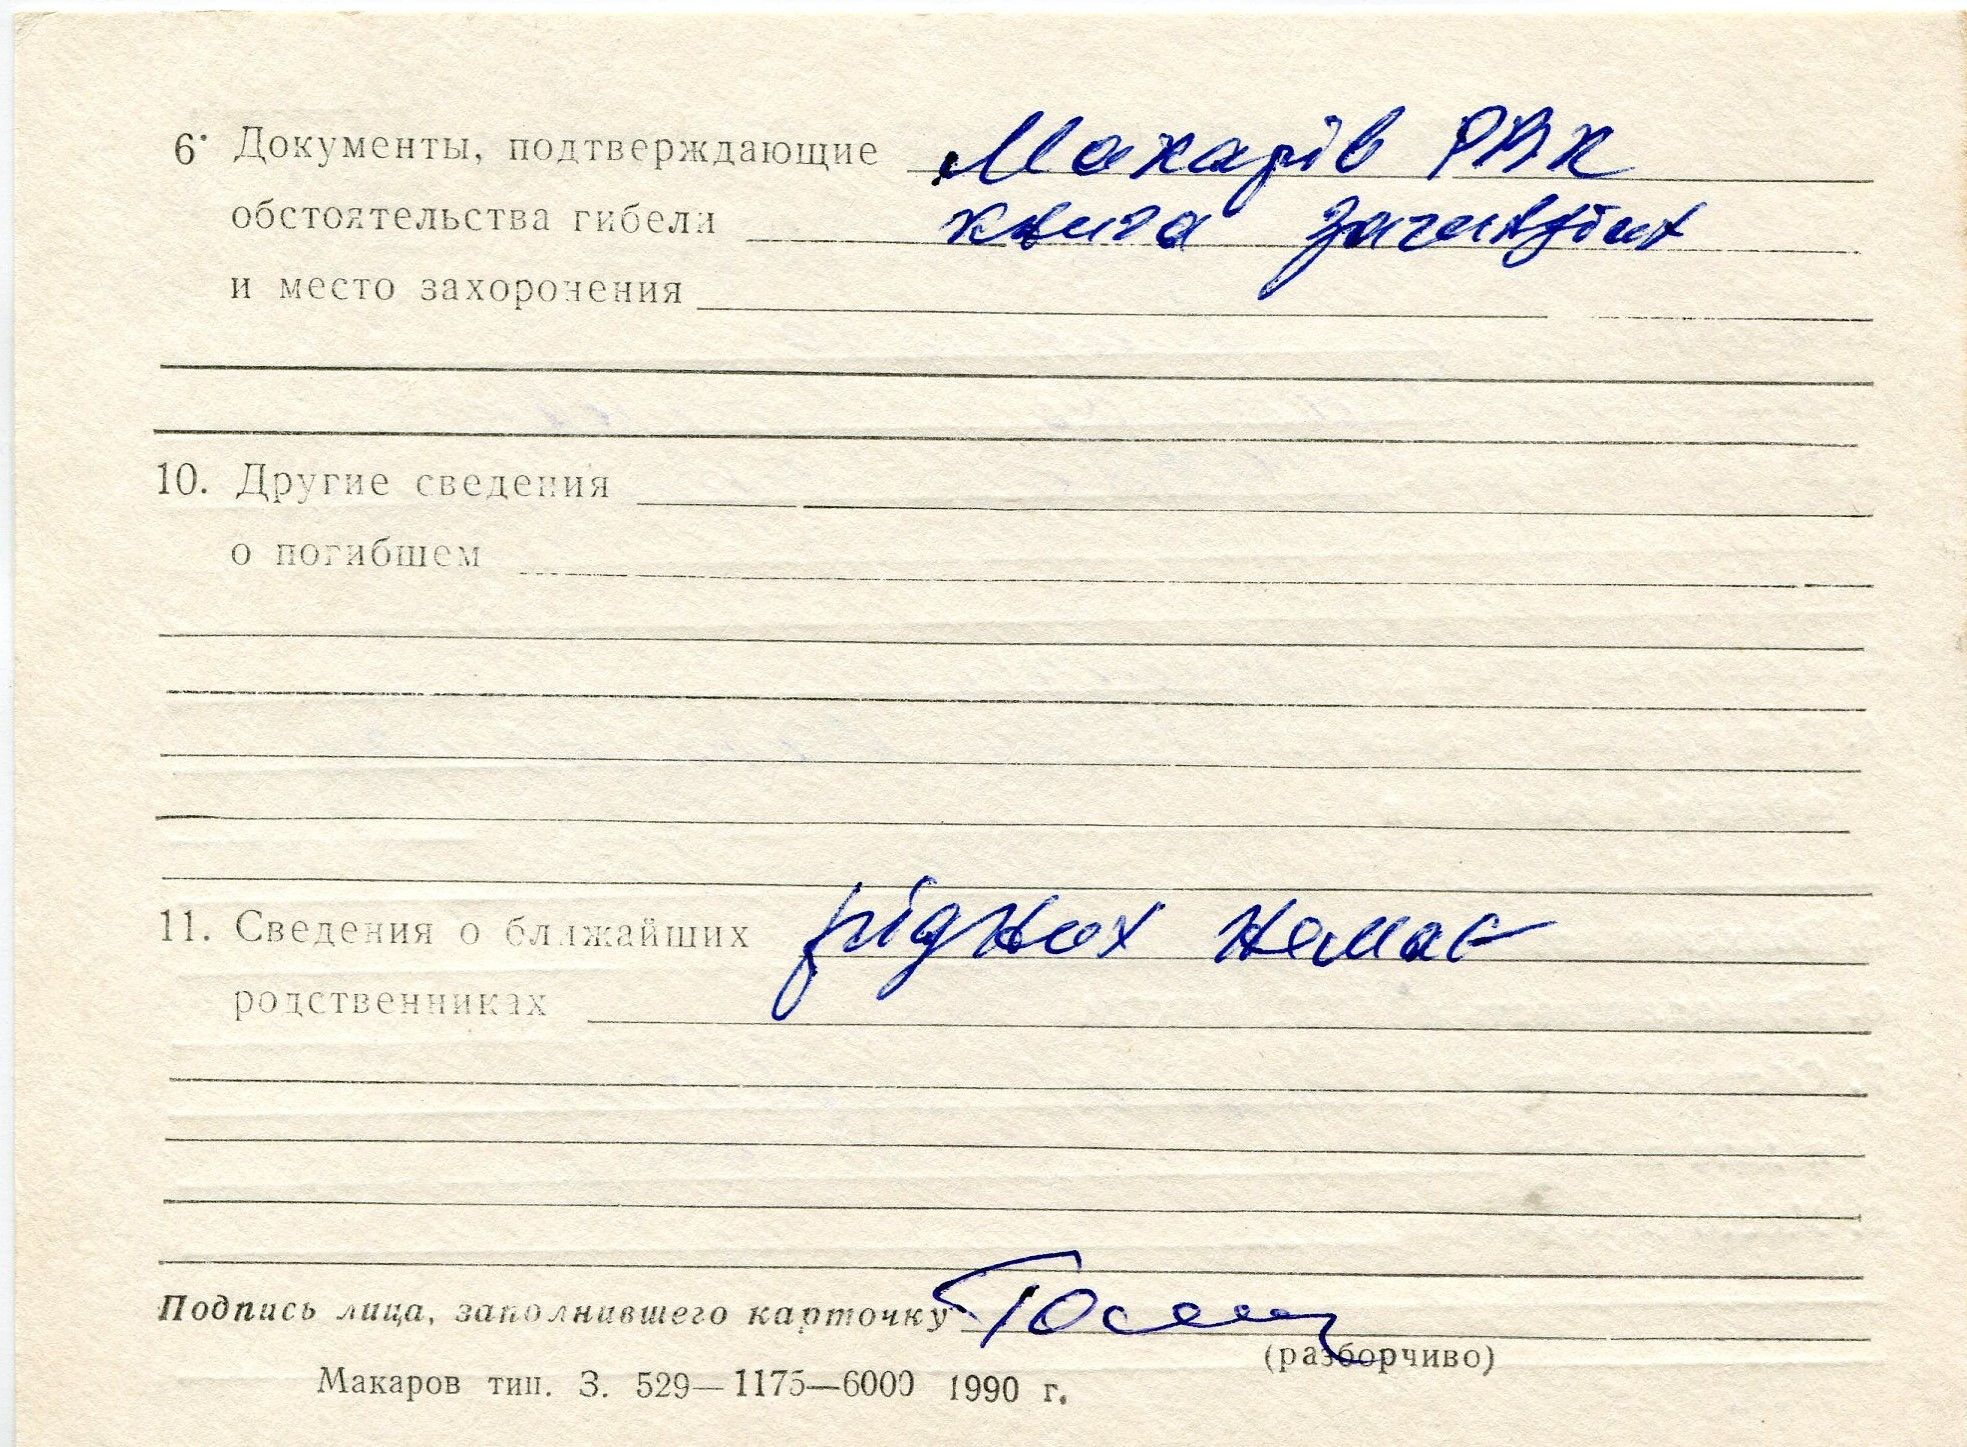 6. Документы, подтверждающие Макарів РВК
обстоятельства гибели книга загиблих
и место захоронения
10. Другие сведения
о погибшем
11. Сведения о ближайших рідних немає
родственниках
Подпись лица, заполнившего карточку
(разборчиво)
Макаров тип. З. 529—1175—6000 1990 г.